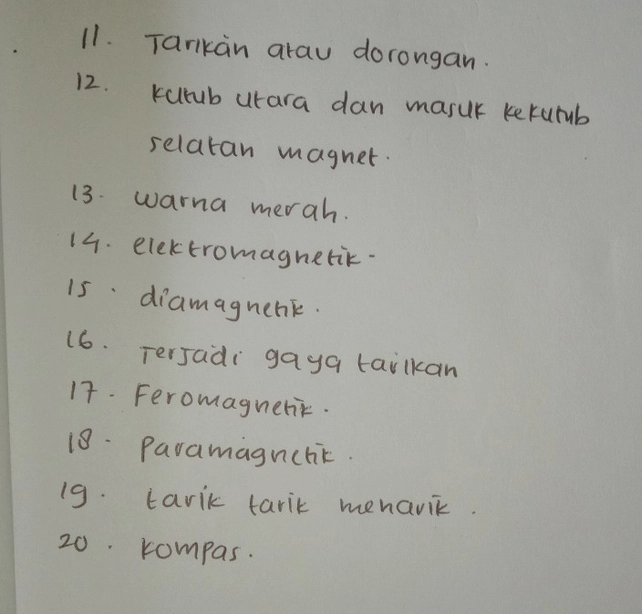 11. Tarikan atau dorongan.
12. kutub utara dan masuk kekutub
selatan magnet.
13. warna merah.
14. elektromagnetik-
15. diamagnetik.
16. Terjadi gaya tarikan
17. Feromagnetik.
18. paramagnetik.
19. tarik tarik menarik.
20. kompas.